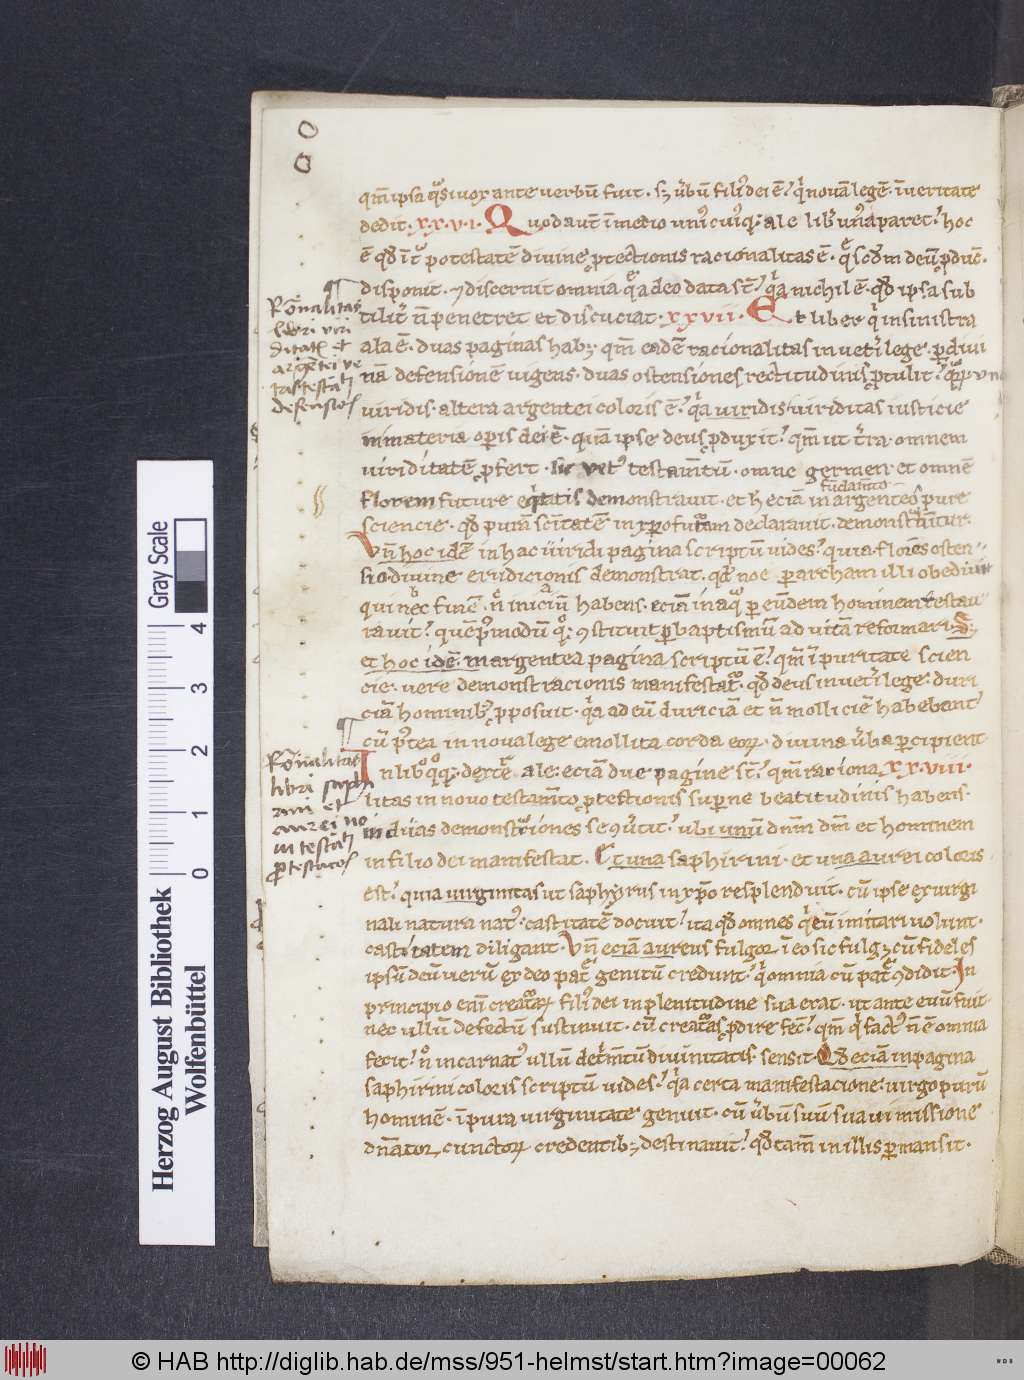 qm̄ ipsa q̄si uox ante uerbū fuit · sꝫ ūbū filꝰ dei ē ? q̇ noua lege · ī ueritate
dedit · x·x·v·i· Quod aut̄ ī medio unꝰcuiꝰq; ale libꝰ unꝰ aparet ? hoc
ē qd̄ īt̄ potestatē diuine ꝓtectionis racionalitas ē · q̄ scd̄m deū ꝓduc̄ ·
disponit · ⁊ discernit omnia q̄ a deo data st̄ ? q̇a nichil ē · qd̄ ipsa sub
tilit̄ n̄ penetret et discuciat · xxvii · Et liber q̇ in sinistra
ala ē · duas paginas habꝫ · qm̄ eadē racionalitas in uet̄i lege · ꝑ diui
nā defensionē uigens · duas ostensiones rectitudinis ꝓtulit ?
uiridis · altera argentei coloris ē ? q̇a uiridis uiriditas iusticie
in materia oꝑis dei ē · quā ipse deus ꝓduxit ? qm̄ ut t̄ra · omnem
uiriditatē ꝓfert · sic uetꝰ testam̄tū · omne germen et omnē
florem future eq̇tatis demonstrauit · et h eciā in argenteo pure
fūdam̄to
sciencie · qd̄ purā sc̄itatē in xp̄o futam declarauit · demonstt̄ur ·
Vn̄ hoc idē in hac uiridi pagina scriptū uides ? quia flores osten
sio · diuine erudicionis demonstrat · qd̄ noe ꝑ archam illi obediuit
qui nec finē · n̄ iniciū habens · eciā in aq̄ ꝑ eūdem hominem restau
rauit ? quēp̄modū q; ꝯstituit ꝑ baptismū ad uitā reformari · S;
et hoc idē · in argentea pagina scriptū ē ? qm̄ ī puritate scien
cie · uere demonstracionis manifestat̄ · qd̄ deus in uet̄i lege · duri
ciā hominibꝰ ꝓposuit · q̇a ad eū duriciā et n̄ molliciē habebant ?
cū p̄tea in noua lege emollita corda eoꝝ · diuina ūba ꝑcipient
In libo q̇ q; dext̄e ale : eciā due pagine st̄ ? qm̄ raciona xx·viii·
litas in nouo testam̄to ꝓtectionis superne beatitudinis habens ·
in duas demonst̄ciones se ꝯūtit ? ubi unū dn̄m dm̄ et hominem
in filio dei manifestat . Et una saphirini · et una aurei coloris
est ? quia uirginitas ut saphyrus in xp̄o resplenduit · cū ipse ex uirgi
nali natura natꝰ · castitatē docuit ? ita qd̄ omnes q̇ eū imitari uolunt ·
castitatem diligant · Vn̄ eciā aureus fulgor ī eo sic fulgꝫ cū fideles
ipsū deū uerū ex deo pat̄ genitū credunt ? q̇ omnia cū pat̄ ꝯdidit · In
principio enī creatoꝝ filꝰ dei in plenitudine sua erat · ut ante euū fuit ·
nec ullū defectū sustinuit · cū creatas ꝓdire fec̄ ? qm̄ q̇ factꝰ n̄ ē omnia
fecit ? n̄ incarnatꝰ ullū det̄m̄tū diuinitatis sensit · Qd̄ eciā in pagina
saphirini coloris scriptū uides ? q̇a certa manifestacione · uirgo purū
hominē · ī pura uirginitate genuit · cū ūbū suū suaui missione
dn̄ator cunctoꝝ credentibꝫ destinauit ? qd̄ tam̄ in illis ꝑmansit ·
Rōnalitas
libri viri
ditatē et
argētei ve
tas testāti
defensio
Rōnalitas
libri saph
irini et
aurei no
ui testāti
ꝓtestatio
Herzog August Bibliothek
Wolfenbüttel
Gray Scale
0 1 2 3 4
© HAB http://diglib.hab.de/mss/951-helmst/start.htm?image=00062